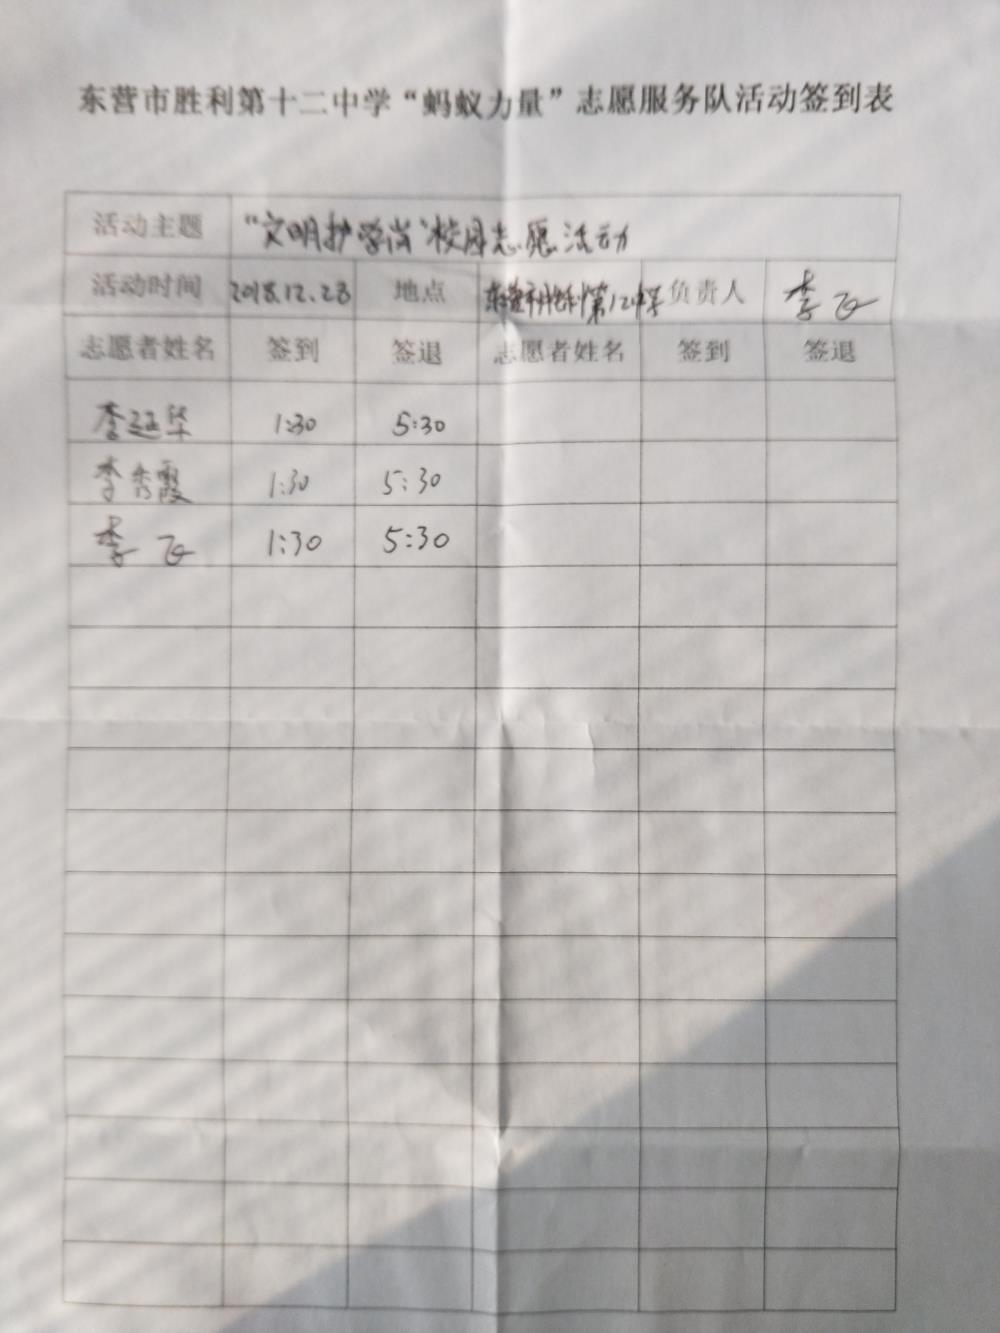 东营市胜利第十二中学“蚂蚁力量”志愿服务队活动签到表
活动主题 “文明护学岗”校园志愿活动
活动时间 2018.12.23 地点 东营市胜利第12中学 负责人 李飞
志愿者姓名 签到 签退 志愿者姓名 签到 签退
李延华 1:30 5:30
李秀霞 1:30 5:30
李飞 1:30 5:30